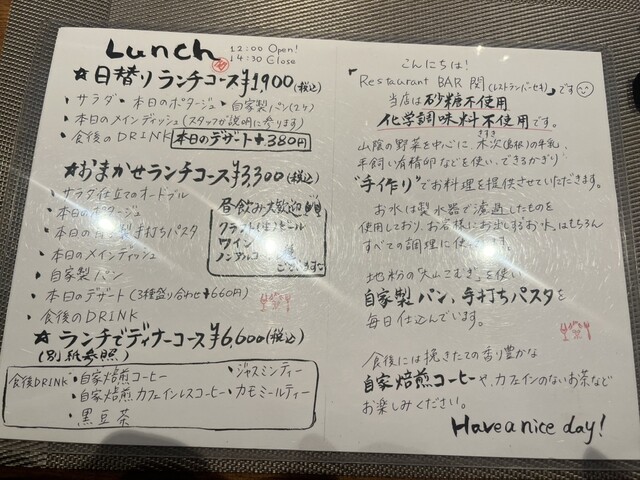 Lunch
12:00 Open!
14:30 Close
★日替りランチコース¥1,900(税込)
・サラダ・本日のポタージュ・自家製パン(2ケ)
・本日のメインディッシュ(スタッフが説明に参ります)
・食後のDRINK 本日のデザート+380円
★おまかせランチコース¥3,300(税込)
・サラダ仕立てのオードブル
・本日のポタージュ
・本日の自家製手打ちパスタ
・本日のメインディッシュ
・自家製パン
・本日のデザート(3種盛り合わせ+660円)
・食後のDRINK
昼飲み大歓迎
クラフト(生)ビール
ワイン
ノンアル
ございます
★ランチでディナーコース¥6,600(税込)
(別紙参照)
食後DRINK
・自家焙煎コーヒー
・ジャスミンティー
・自家焙煎カフェインレスコーヒー
・カモミールティー
・黒豆茶
こんにちは!
「Restaurant BAR 関(レストランバーセキ)」です
当店は砂糖不使用
化学調味料不使用です。
山陰の野菜を中心に、木次(島根)の牛乳、
きすき
平飼い有精卵などを使い、できるかぎり
"手作り"でお料理を提供させていただきます。
お水は製水器で濾過したものを
使用しており、お客様にお出しするお水はもちろん
すべての調理に使
地粉の"大山こむぎ"を使い
自家製パン、手打ちパスタを
毎日仕込んでいます。
食後には挽きたての香り豊かな
自家焙煎コーヒーや、カフェインのないお茶など
お楽しみください。
Have a nice day!